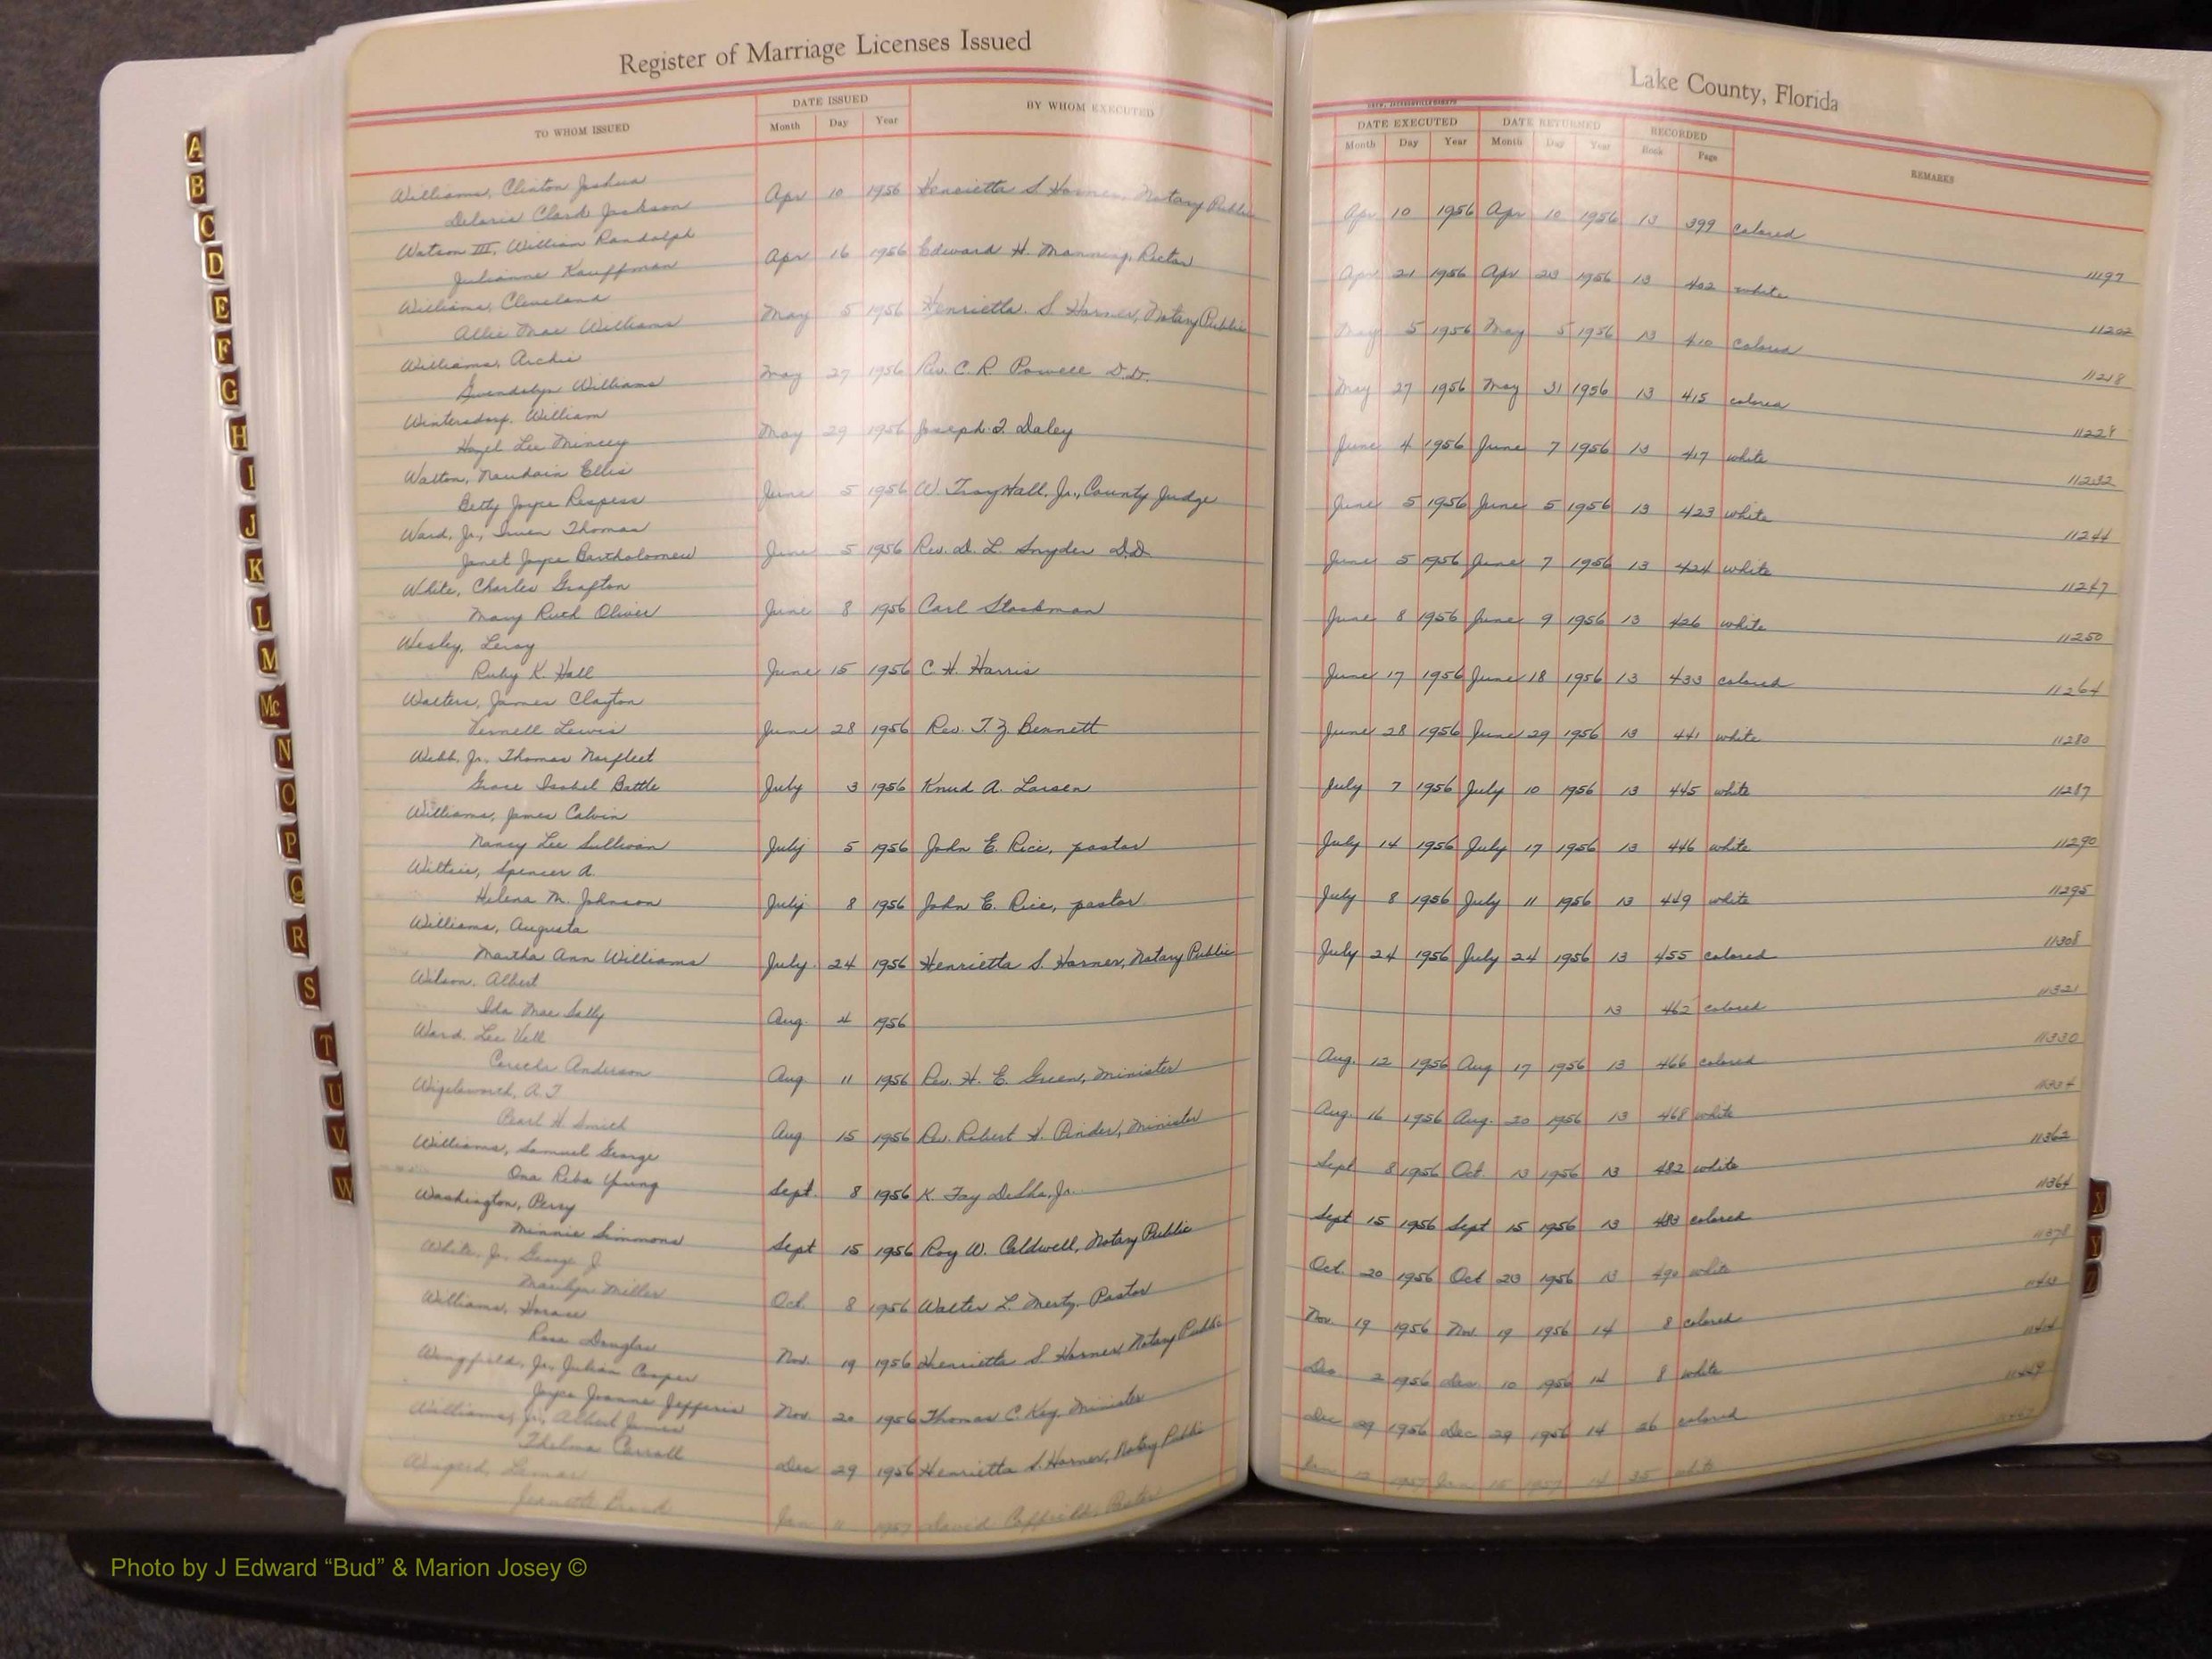 Register of Marriage Licenses Issued
Lake County, Florida
TO WHOM ISSUED
DATE ISSUED
Month Day Year
BY WHOM EXECUTED
DATE EXECUTED
Month Day Year
DATE RETURNED
Month Day Year
RECORDED
Book Page
REMARKS
Williams, Clinton Joshua
Deloris Clark Jackson
Apr 10 1956 Henrietta S. Harner, Notary Public Apr 10 1956 Apr 10 1956 13 399 colored 11197
Watson III, William Randolph
Julianne Kauffman
Apr 16 1956 Edward H. Manning, Rector Apr 21 1956 Apr 23 1956 13 402 white 11202
Williams, Cleveland
Allie Mae Williams
May 5 1956 Henrietta S. Harner, Notary Public May 5 1956 May 5 1956 13 410 colored 11218
Williams, Archie
Gwendolyn Williams
May 27 1956 Rev. C. R. Powell D.D. May 27 1956 May 31 1956 13 415 colored
Wintersdorf, William
Hazel Lee Mincey
May 29 1956 Joseph Daley June 4 1956 June 7 1956 13 417 white 11232
Walton, Naudain Ellis
Betty Joyce Respess
June 5 1956 W. Troy Hall, Jr., County Judge June 5 1956 June 5 1956 13 423 white 11244
Ward, Jr., Thomas
Janet Joyce Bartholomew
June 5 1956 Rev. D. L. Snyder D.D. June 5 1956 June 7 1956 13 424 white 11247
White, Charles Grafton
Mary Ruth Oliver
June 8 1956 Carl Stackman June 8 1956 June 9 1956 13 426 white 11250
Wesley, Leroy
Ruby K. Hall
June 15 1956 C. H. Harris June 17 1956 June 18 1956 13 433 colored 11264
Walters, James Clayton
Vernell Lewis
June 28 1956 Rev. T. Z. Bennett June 28 1956 June 29 1956 13 441 white 11280
Webb, Jr., Thomas Norfleet
Grace Isabel Battle
July 3 1956 Knud A. Larsen July 7 1956 July 10 1956 13 445 white 11287
Williams, James Calvin
Nancy Lee Sullivan
July 5 1956 John E. Rice, pastor July 14 1956 July 17 1956 13 446 white 11290
Wiltsie, Spencer A.
Helena M. Johnson
July 8 1956 John E. Rice, pastor July 8 1956 July 11 1956 13 449 white 11295
Williams, Augusta
Martha Ann Williams
July 24 1956 Henrietta S. Harner, Notary Public July 24 1956 July 24 1956 13 455 colored 11308
Wilson, Albert
Ida Mae Sally
Aug. 4 1956 13 462 colored 11321
Ward, Lee Vell
Anderson
Aug. 11 1956 Rev. H. E. Green, Minister Aug. 12 1956 Aug 17 1956 13 466 colored 11330
Wigelsworth, A.T
Pearl H. Smith
Aug 15 1956 Rev. Robert H. Pinder, Minister Aug. 16 1956 Aug. 20 1956 13 468 white 11334
Williams, Samuel George
Ona Reba Young
Sept. 8 1956 K. Fay DeSha, Jr. Sept 8 1956 Oct 13 1956 13 482 white 11362
Washington, Percy
Minnie Simmons
Sept 15 1956 Roy W. Caldwell, Notary Public Sept 15 1956 Sept 15 1956 13 483 colored 11364
White, Jr. George J
Marilyn Miller
Oct. 8 1956 Walter L. Mertz, Pastor Oct. 20 1956 Oct 23 1956 13 490 white 11378
Williams, Horace
Rosa Douglas
Nov. 19 1956 Henrietta S. Harner, Notary Public Nov. 19 1956 Nov 19 1956 14 8 colored
Wingfield, Jr., Julian Cooper
Joyce Joanne Jefferis
Nov. 20 1956 Thomas C. Key, Minister Dec 2 1956 Dec. 10 1956 14 8 white
Williams, Jr., Albert James
Thelma Carroll
Dec 29 1956 Henrietta S. Harner, Notary Public Dec 29 1956 Dec 29 1956 14 26 colored
Wingerd, Lamar
Jeanette
Jan 11 1957 David Pastor Jan 12 1957 Jan 15 1957 14 35 white
A
B
C
D
E
F
G
H
I
J
K
L
M
Mc
N
O
P
Q
R
S
T
U
V
W
X
Y
Z
Photo by J Edward “Bud” & Marion Josey ©